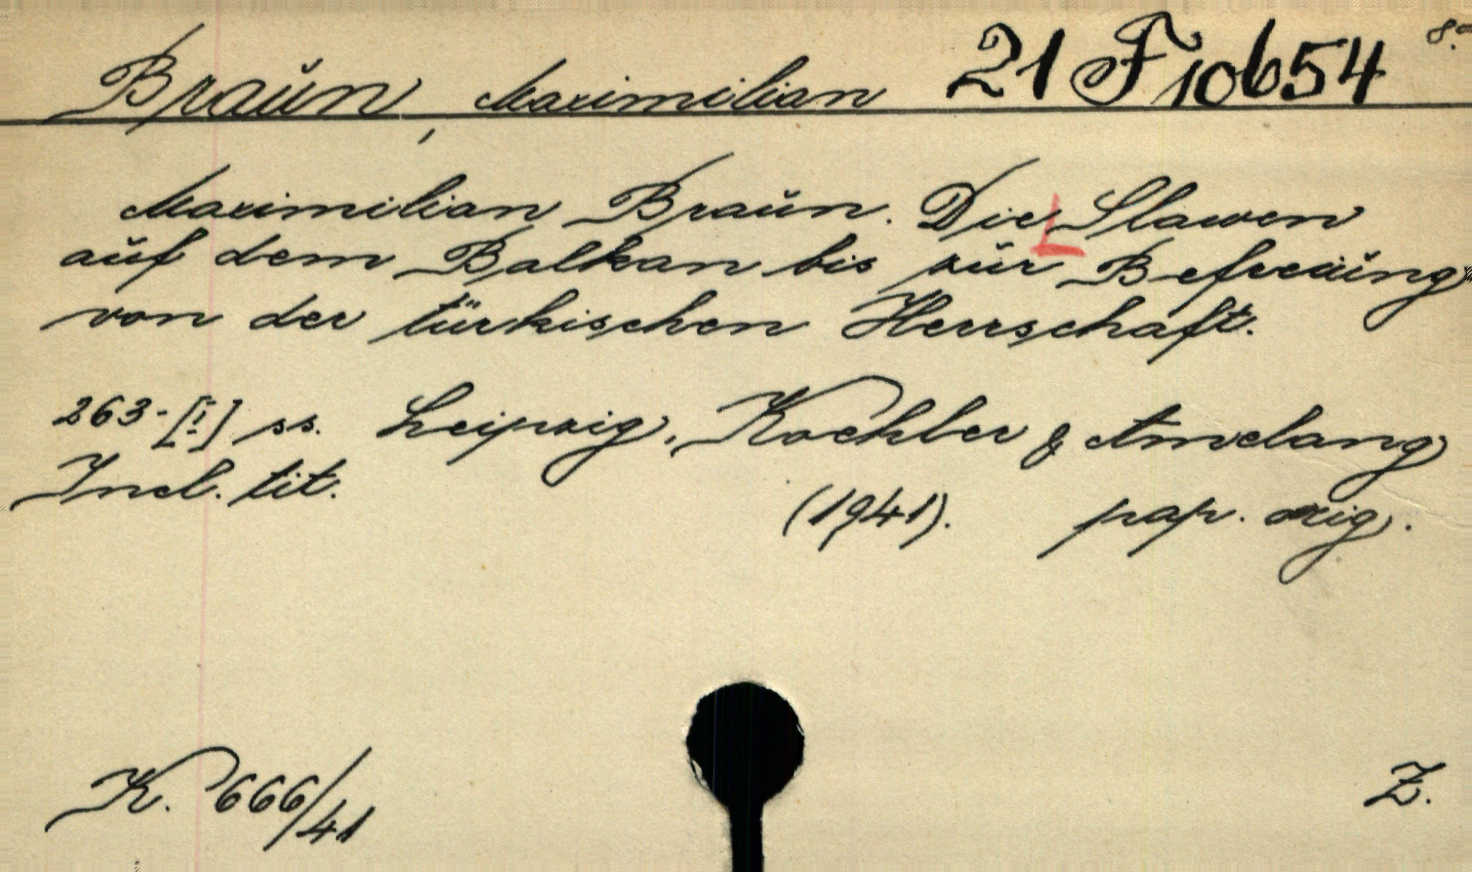 Braun, Maximilian 21 F 10654 8.°
Maximilian Braun. Die Slawen
auf dem Balkan bis zur Befreiung
von der türkischen Herrschaft.
263-[I] ss. Leipzig, Koehler & Amelang
Incl. tit. (1941). pap. orig.
K. 666/41 Z.